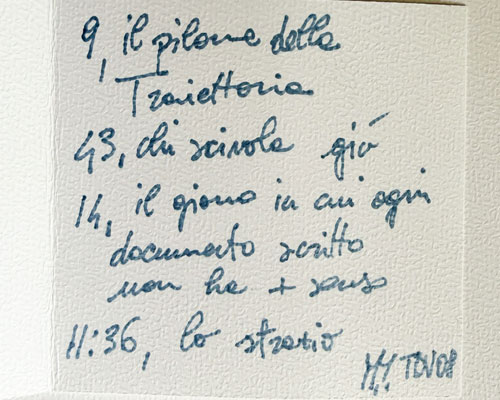 9, il pilone della
Traiettoria
43, chi scivola giù
14, il giorno in cui ogni
documento scritto
non ha + senso
11:36, lo strazio